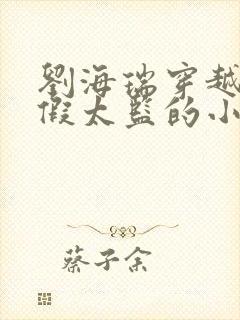 劉海瑞穿越
假太監的小
蔡子余